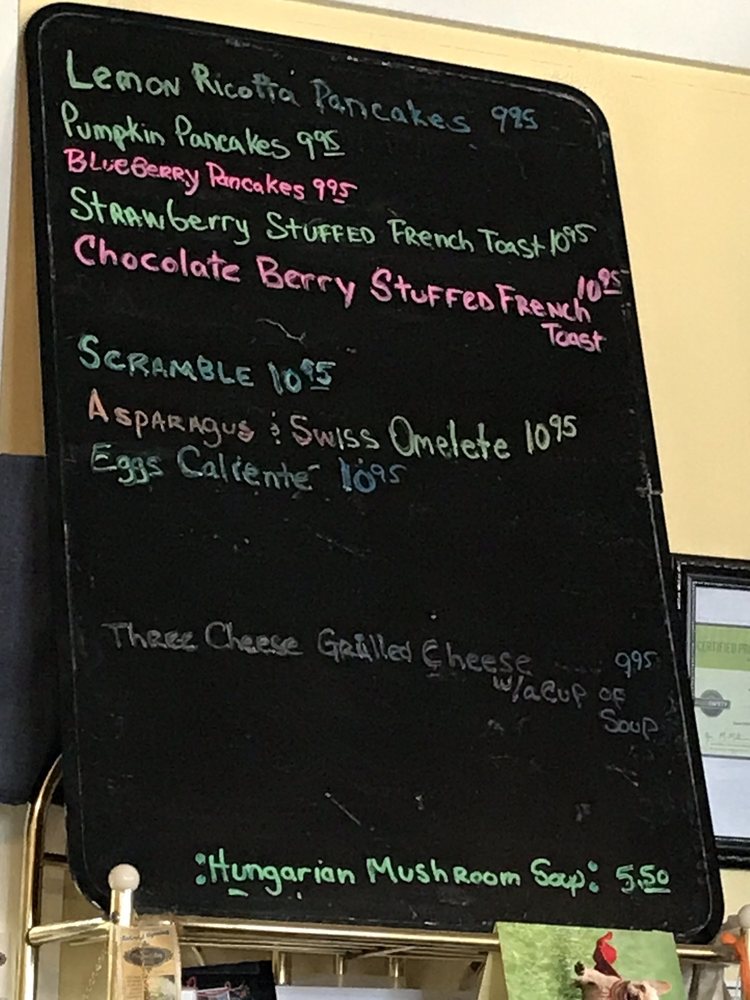 Lemon Ricotta Pancakes 995
Pumpkin Pancakes 995
BLUEBERRY Pancakes 995
STRAWberry STUFFED French Toast 1095
Chocolate Berry STUFFED FRENCH 1095
Toast
SCRAMBLE 1095
ASPARAGUS & SWISS Omelete 1095
Eggs Caliente 1095
Three Cheese Grilled Cheese 995
w/a cup of
Soup
:Hungarian MushRoom Soup: 5.50